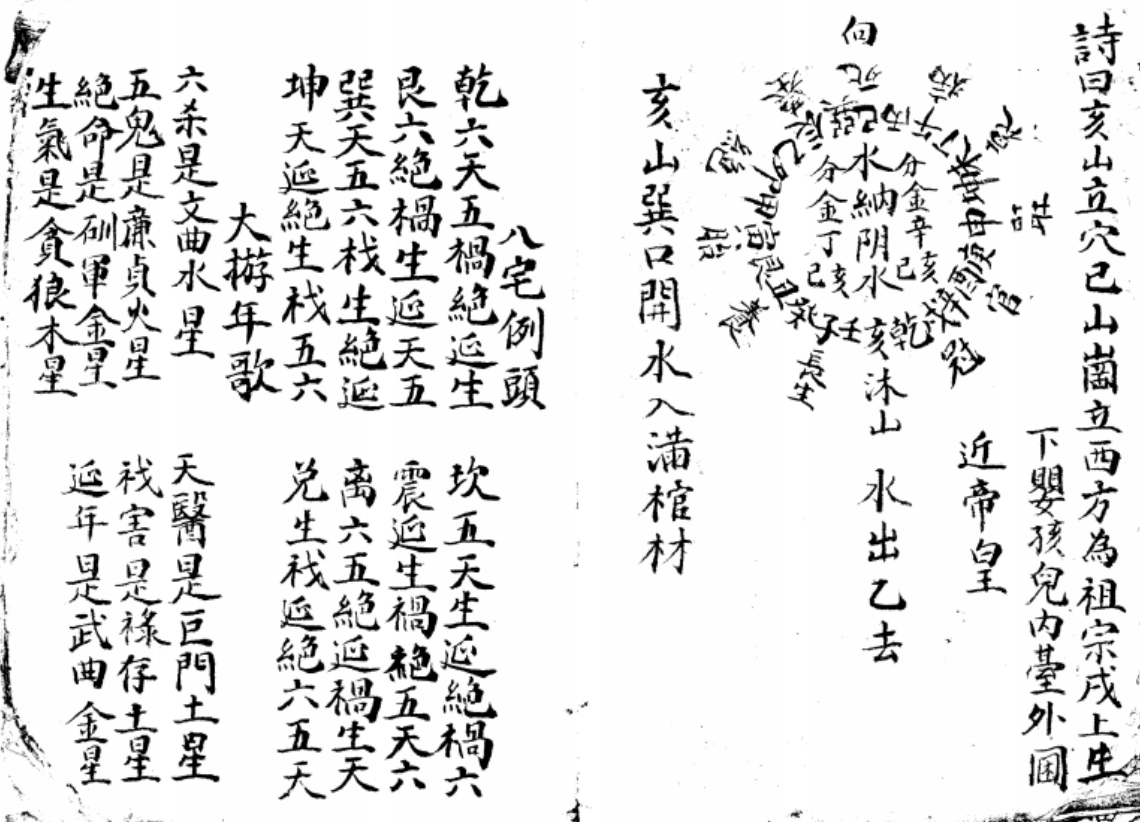 詩曰亥山立穴巳山崗立西方為祖宗戌上生
下嬰孩兒內臺外圍
近帝皇
向
水納阴水
分金辛亥
巳
分金丁亥
巳
亥山
水出乙去
長生
沐
冠
官
旺
養
胎
絕
壬子
乾
亥山巽口開水入滿棺材
八宅例頭
乾六天五禍絕延生
坎五天生延絕禍六
艮六絕禍生延天五
震延生禍絕五天六
巽天五六栈生絕延
离六五絕延禍生天
坤天延絕生栈五六
兑生栈延絕六五天
大遊年歌
六杀是文曲水星
天醫是巨門土星
五鬼是廉貞火星
栈害是祿存土星
絕命是破軍金星
延年是武曲金星
生氣是貪狼木星